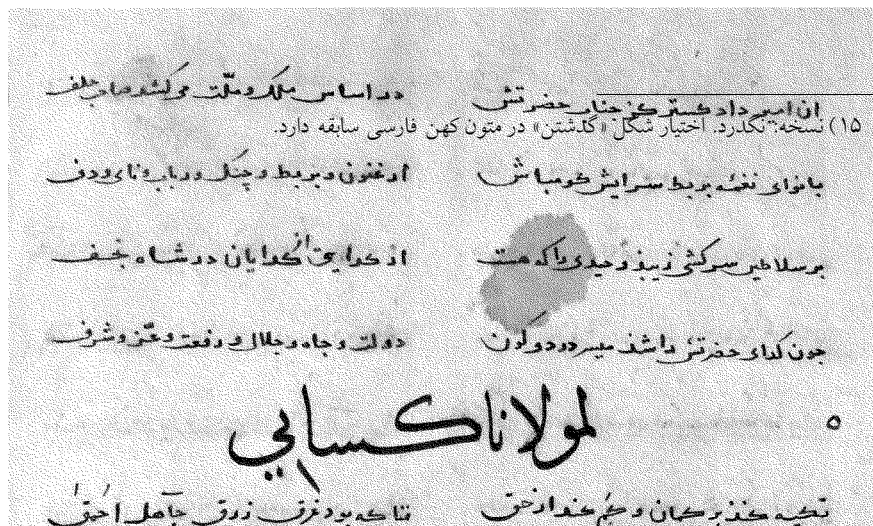 ان امیر داد کستر کز جناب حضرتش در اساس ملک و ملت می کشد صاحب خلف
۱۵) نسخه: نگذرد. اختیار شکل «گذشتن» در متون کهن فارسی سابقه دارد.
با نوای نغمه بربط سرایش کو مباش ارغنون و بربط و چنک و رباب و نای و دف
بر سلاطین سرکشی زیبذ وحیدی را که هست از کدایی از کدایان در شاه نجف
جون کدای حضرتش را شذ میسر در دو کون دولت و جاه و جلال و رفعت و عز و شرف
لمولانا کسایی
۵
تکیه کنذ بر کمان و حق
تا که بود فرق زرق جاهل احمق